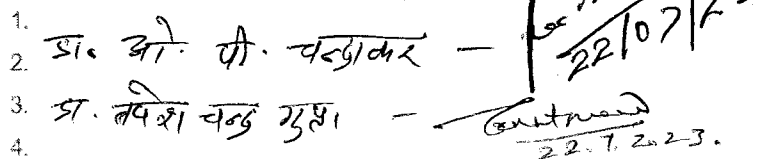 1.
2. डा. ओ. पी. चन्द्राकर - 22/07/
3. डा. तपेश चन्द्र गुप्ता -
22.7.2023.
4.